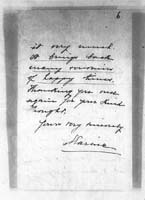 6
it very much.
It brings back
many memories
of happy times.
Thanking you once
again for your kind
thought.
Yours very sincerely